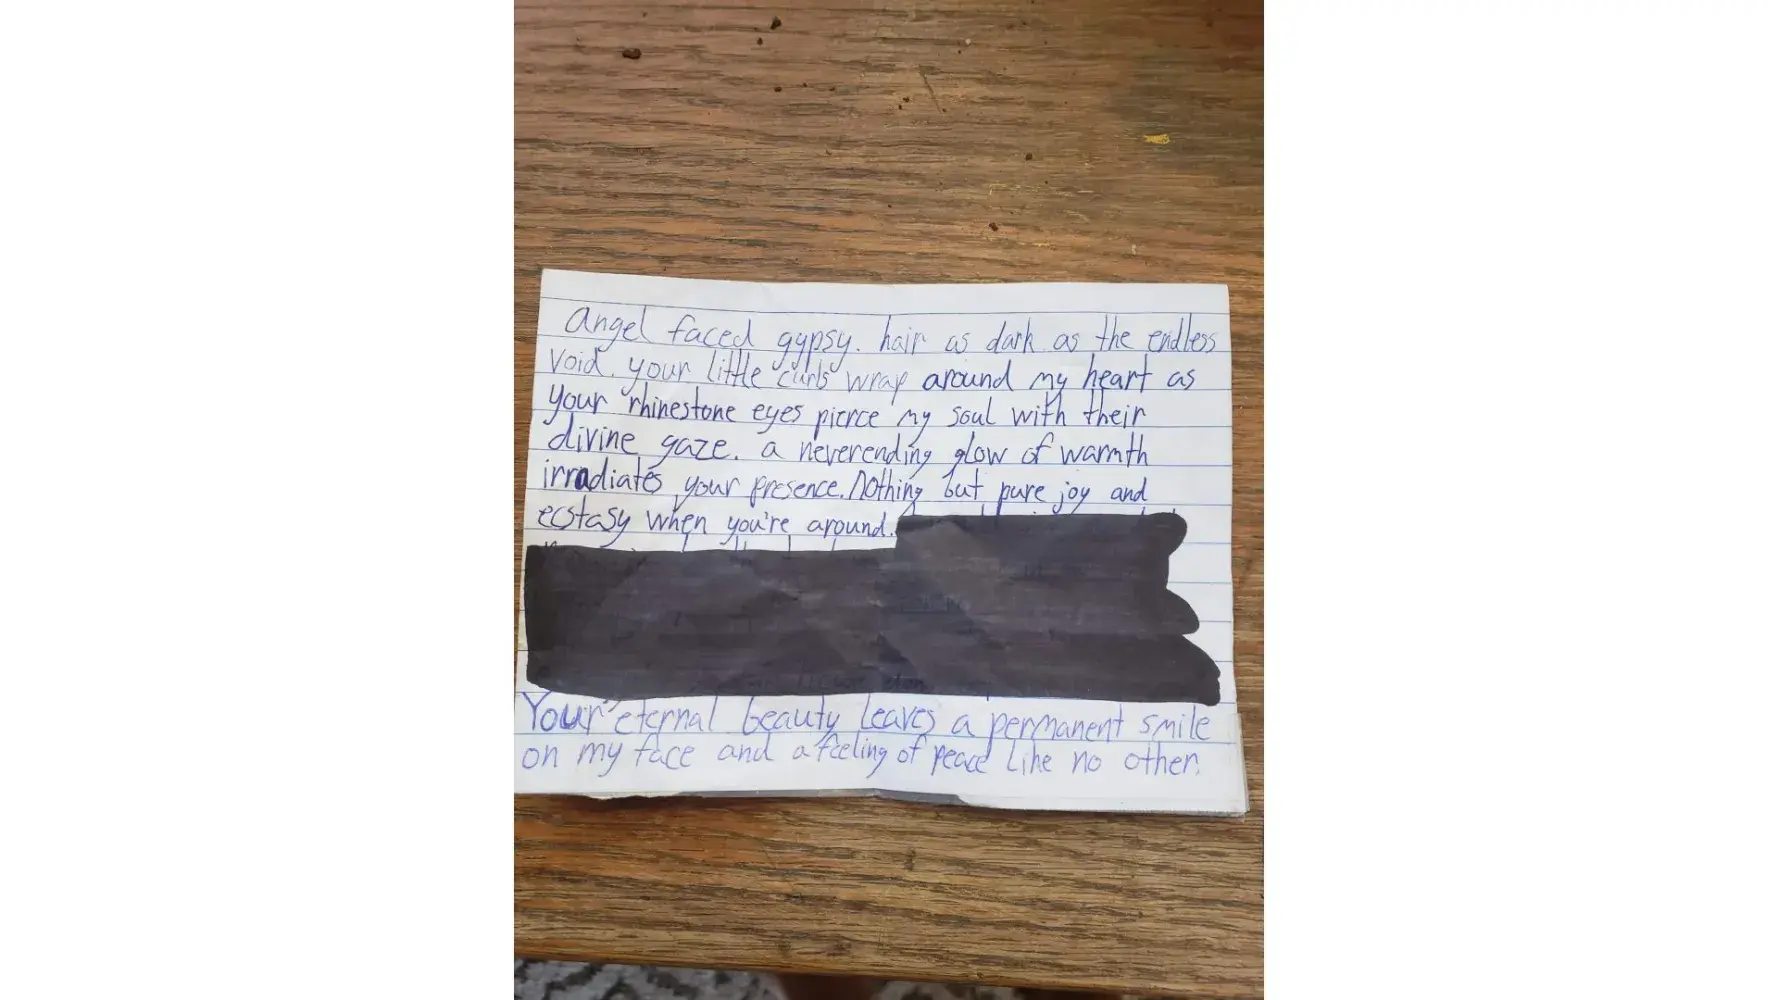 Angel faced gypsy. hair as dark as the endless
void. your little curls wrap around my heart as
your rhinestone eyes pierce my soul with their
divine gaze. a neverending glow of warmth
irradiates your presence. Nothing but pure joy and
ecstasy when you're around.
Your eternal beauty leaves a permanent smile
on my face and a feeling of peace like no other.